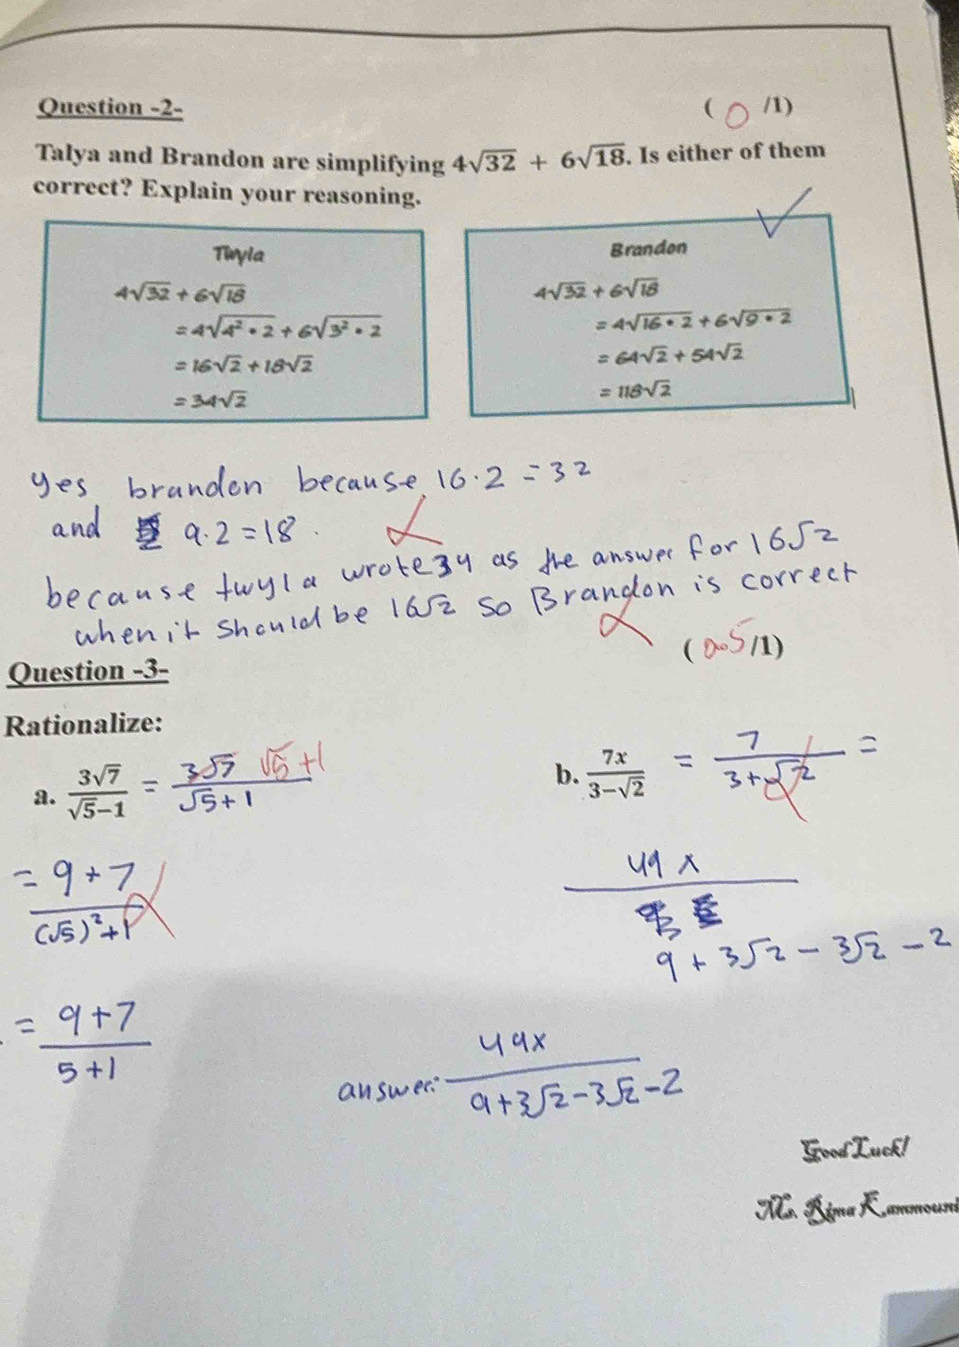 Question -2-
( 0 /1)
Talya and Brandon are simplifying 4√32 + 6√18. Is either of them
correct? Explain your reasoning.
Twyla
4√32 + 6√18
= 4√4² • 2 + 6√3² • 2
= 16√2 + 18√2
= 34√2
Brandon
4√32 + 6√18
= 4√16 • 2 + 6√9 • 2
= 64√2 + 54√2
= 118√2
yes brandon because 16·2 = 32
and 9·2 = 18.
because twyla wrote 34 as the answer for 16√2
when it should be 16√2 so Brandon is correct
( 0.5 /1)
Question -3-
Rationalize:
a. 3√7/√5−1 = 3√7 √5+1/√5+1
= 9+7/(√5)²+1
= 9+7/5+1
b. 7x/3−√2 = 7/3+√2 =
49x/9+3√2−3√2−2
answer: 49x/9+3√2−3√2−2
Good Luck!
Ms. Rima Kammouni